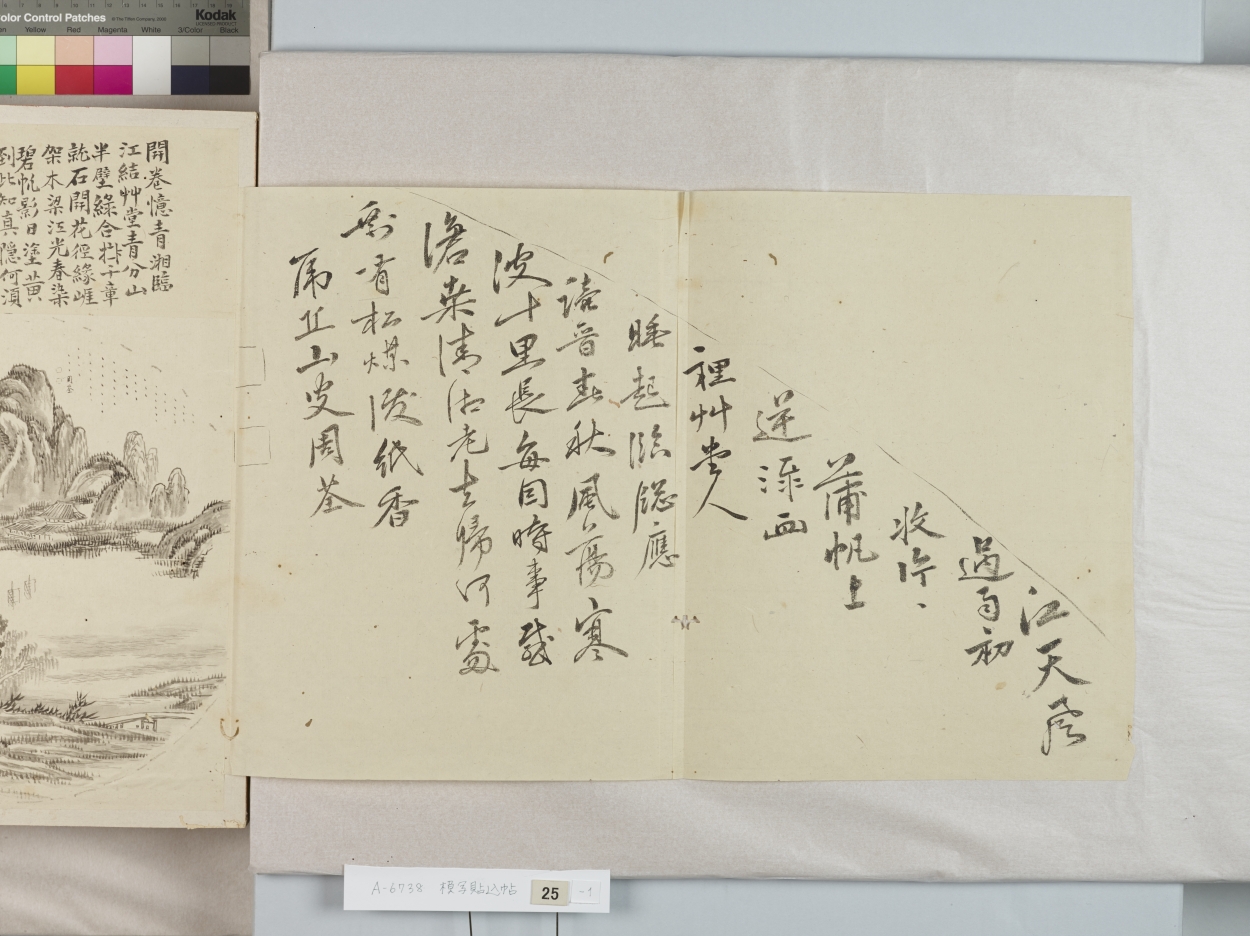 Color Control Patches
Kodak
LICENSED PRODUCT
Yellow Red Magenta White 3/Color Black
江天風
過雨初
收片ヽ
蒲帆上
逆流画
裡艸堂人
睡起臨窓應
讀晉春秋風蕩寒
波十里長每因時事感
滄桒清湘老去歸何處
剩有松煤潑紙香
虎丘山叟周荃
開卷憶青湘臨
江結艸堂青分山
半壁綠合樹千章
就石開花徑緣崕
架木梁江光春染
碧帆影日塗黃
到此知真隱何須
A-6738 模写貼込帖 25 -1